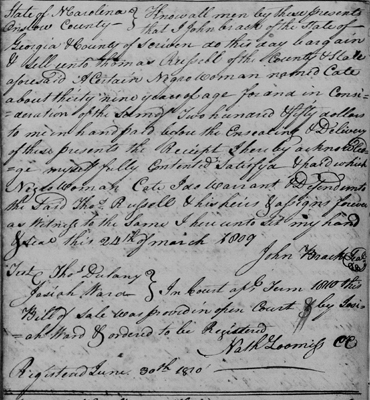 State of N Carolina } Know all men by these presents
Onslow County } that I John brack of the State of
Georgia & County of Scriven do this day bargain
& sell unto Thomas Russell of the County & State
aforesaid A Certain Negro woman named Cate
about thirty nine years of age for and in Consi-
deration of the Sum of Two hundred & fifty dollars
to me in hand paid before the Ensealing & Delivery
of these presents the Receipt I hereby acknowled-
ge myself fully Contented Satisfyd & paid which
Negro Woman Cate I do Warrant & Defend unto
the said Thos Russell & his heirs & assigns forever
as Witness to the Same I hereunto set my hand
& seal this 24th of march 1809
John Brack Seal
Test Thos Dulany }
Josiah Ward } In Court ap Term 1810 this
Bill of sale was proved in open Court by Josi-
ah Ward & ordered to be Registered
Nathl Loomiss CC
Registered June 30th 1810